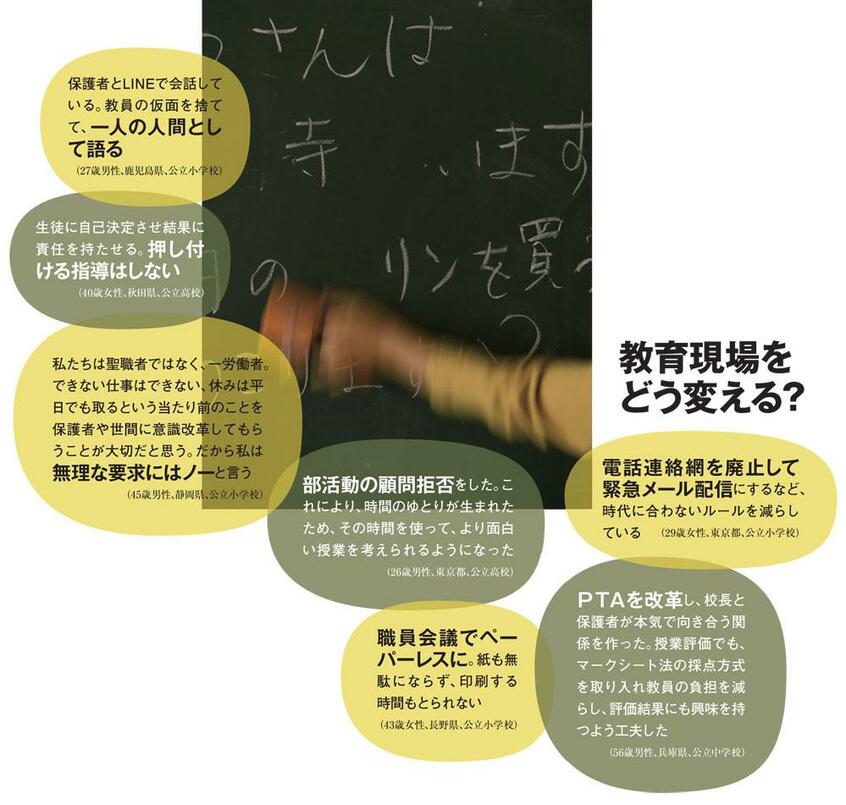 さんは
寺
います
の
リンを買
教育現場を
どう変える?
保護者とLINEで会話して
いる。教員の仮面を捨て
て、一人の人間とし
て語る
(27歳男性、鹿児島県、公立小学校)
生徒に自己決定させ結果に
責任を持たせる。押し付
ける指導はしない
(40歳女性、秋田県、公立高校)
私たちは聖職者ではなく、一労働者。
できない仕事はできない、休みは平
日でも取るという当たり前のことを
保護者や世間に意識改革してもら
うことが大切だと思う。だから私は
無理な要求にはノーと言う
(45歳男性、静岡県、公立小学校)
部活動の顧問拒否をした。こ
れにより、時間のゆとりが生まれた
ため、その時間を使って、より面白
い授業を考えられるようになった
(26歳男性、東京都、公立高校)
電話連絡網を廃止して
緊急メール配信にするなど、
時代に合わないルールを減らし
ている (29歳女性、東京都、公立小学校)
職員会議でペー
パーレスに。紙も無
駄にならず、印刷する
時間もとられない
(43歳女性、長野県、公立小学校)
PTAを改革し、校長と
保護者が本気で向き合う関
係を作った。授業評価でも、
マークシート法の採点方式
を取り入れ教員の負担を減
らし、評価結果にも興味を持
つよう工夫した
(56歳男性、兵庫県、公立中学校)